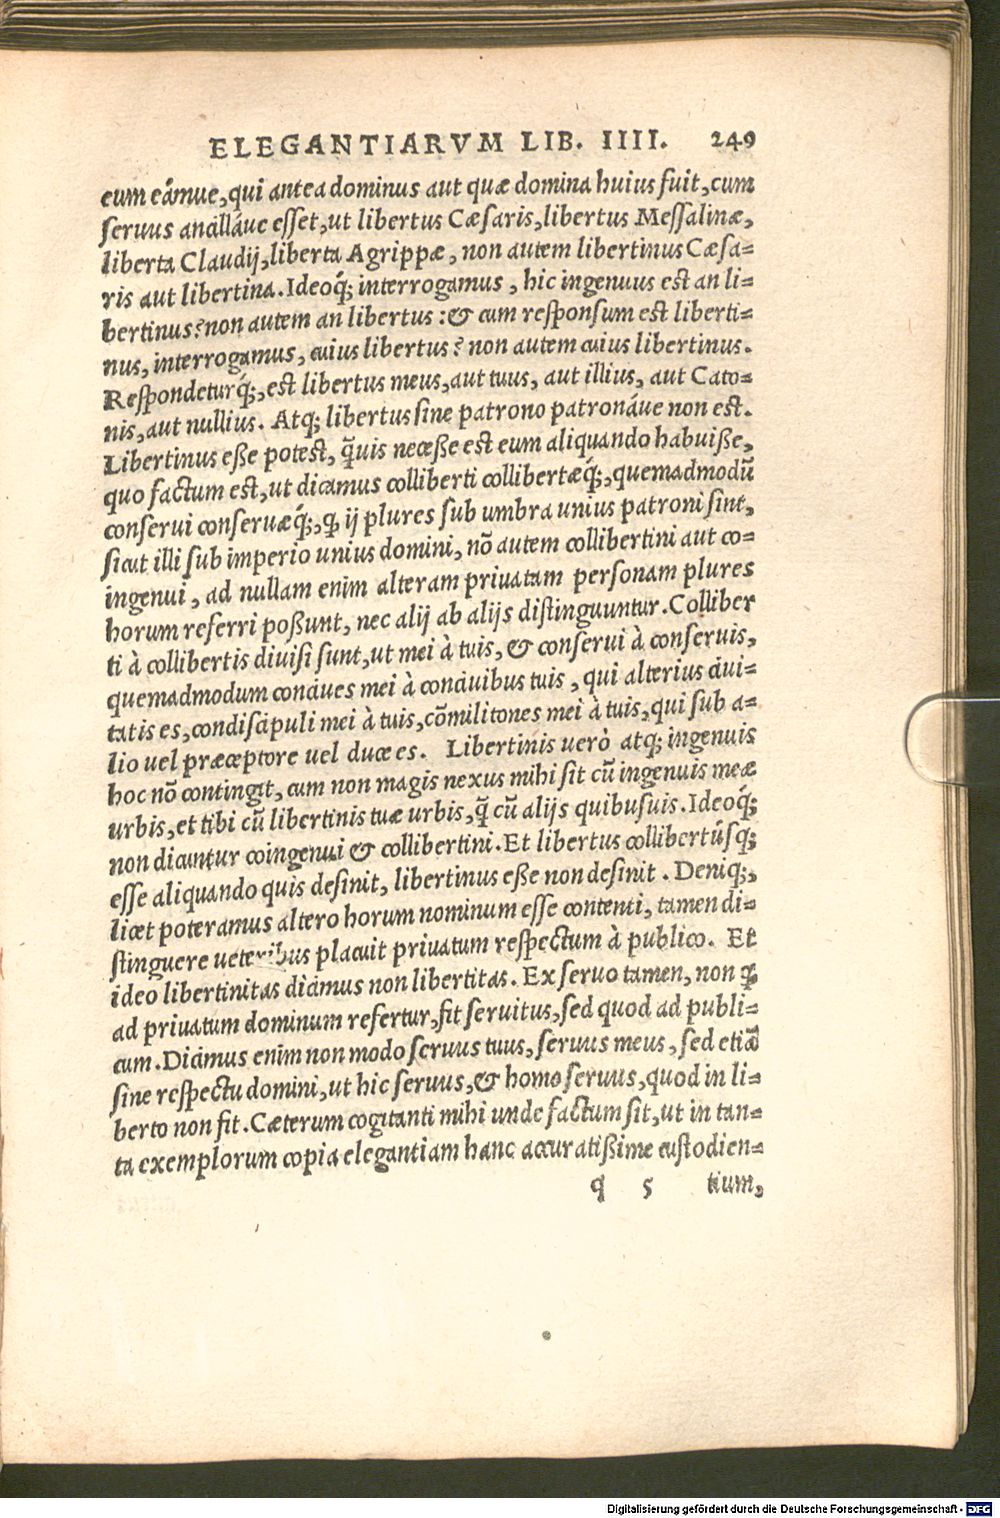 ELEGANTIARVM LIB. IIII. 249
eum eámue, qui antea dominus aut quæ domina huius fuit, cum
ſeruus ancilláue eſſet, ut libertus Cæſaris, libertus Meſſalinæ,
liberta Claudij, liberta Agrippæ, non autem libertinus Cæſa=
ris aut libertina. Ideoq́; interrogamus, hic ingenuus est an li=
bertinus? non autem an libertus: & cum reſponſum est liberti=
nus, interrogamus, cuius libertus? non autem cuius libertinus.
Reſpondeturq́;, est libertus meus, aut tuus, aut illius, aut Cato=
nis, aut nullius. Atq; libertus ſine patrono patronáue non est.
Libertinus eße potest, q̃uis neceße est eum aliquando habuiße,
quo factum est, ut dicamus colliberti collibertæq́;, quemadmodũ
conſerui conſeruæq́;, ꝙ ij plures ſub umbra unius patroni ſint,
ſicut illi ſub imperio unius domini, nõ autem collibertini aut co=
ingenui, ad nullam enim alteram priuatam perſonam plures
horum referri poßunt, nec alij ab alijs distinguuntur. Colliber
ti à collibertis diuiſi ſunt, ut mei à tuis, & conſerui à conſeruis,
quemadmodum conciues mei à conciuibus tuis, qui alterius ciui=
tatis es, condiſcipuli mei à tuis, cõmilitones mei à tuis, qui ſub a=
lio uel præceptore uel duce es. Libertinis uerò atq; ingenuis
hoc nõ contingit, cum non magis nexus mihi ſit cũ ingenuis meæ
urbis, et tibi cũ libertinis tuæ urbis, q̃ cũ alijs quibuſuis. Ideoq́;
non dicuntur coingenui & collibertini. Et libertus collibertúſq;
eſſe aliquando quis deſinit, libertinus eße non deſinit. Deniq;,
licet poteramus altero horum nominum eſſe contenti, tamen di=
ſtinguere ueteribus placuit priuatum reſpectum à publico. Et
ideo libertinitas dicimus non libertitas. Ex ſeruo tamen, non ꝙ
ad priuatum dominum refertur, fit ſeruitus, ſed quod ad publi=
cum. Dicimus enim non modo ſeruus tuus, ſeruus meus, ſed etiã
ſine reſpectu domini, ut hic ſeruus, & homo ſeruus, quod in li=
berto non fit. Cæterum cogitanti mihi unde factum ſit, ut in tan=
ta exemplorum copia elegantiam hanc accuratißime cuſtodien=
q 5 tium,
Digitalisierung gefördert durch die Deutsche Forschungsgemeinschaft - DFG